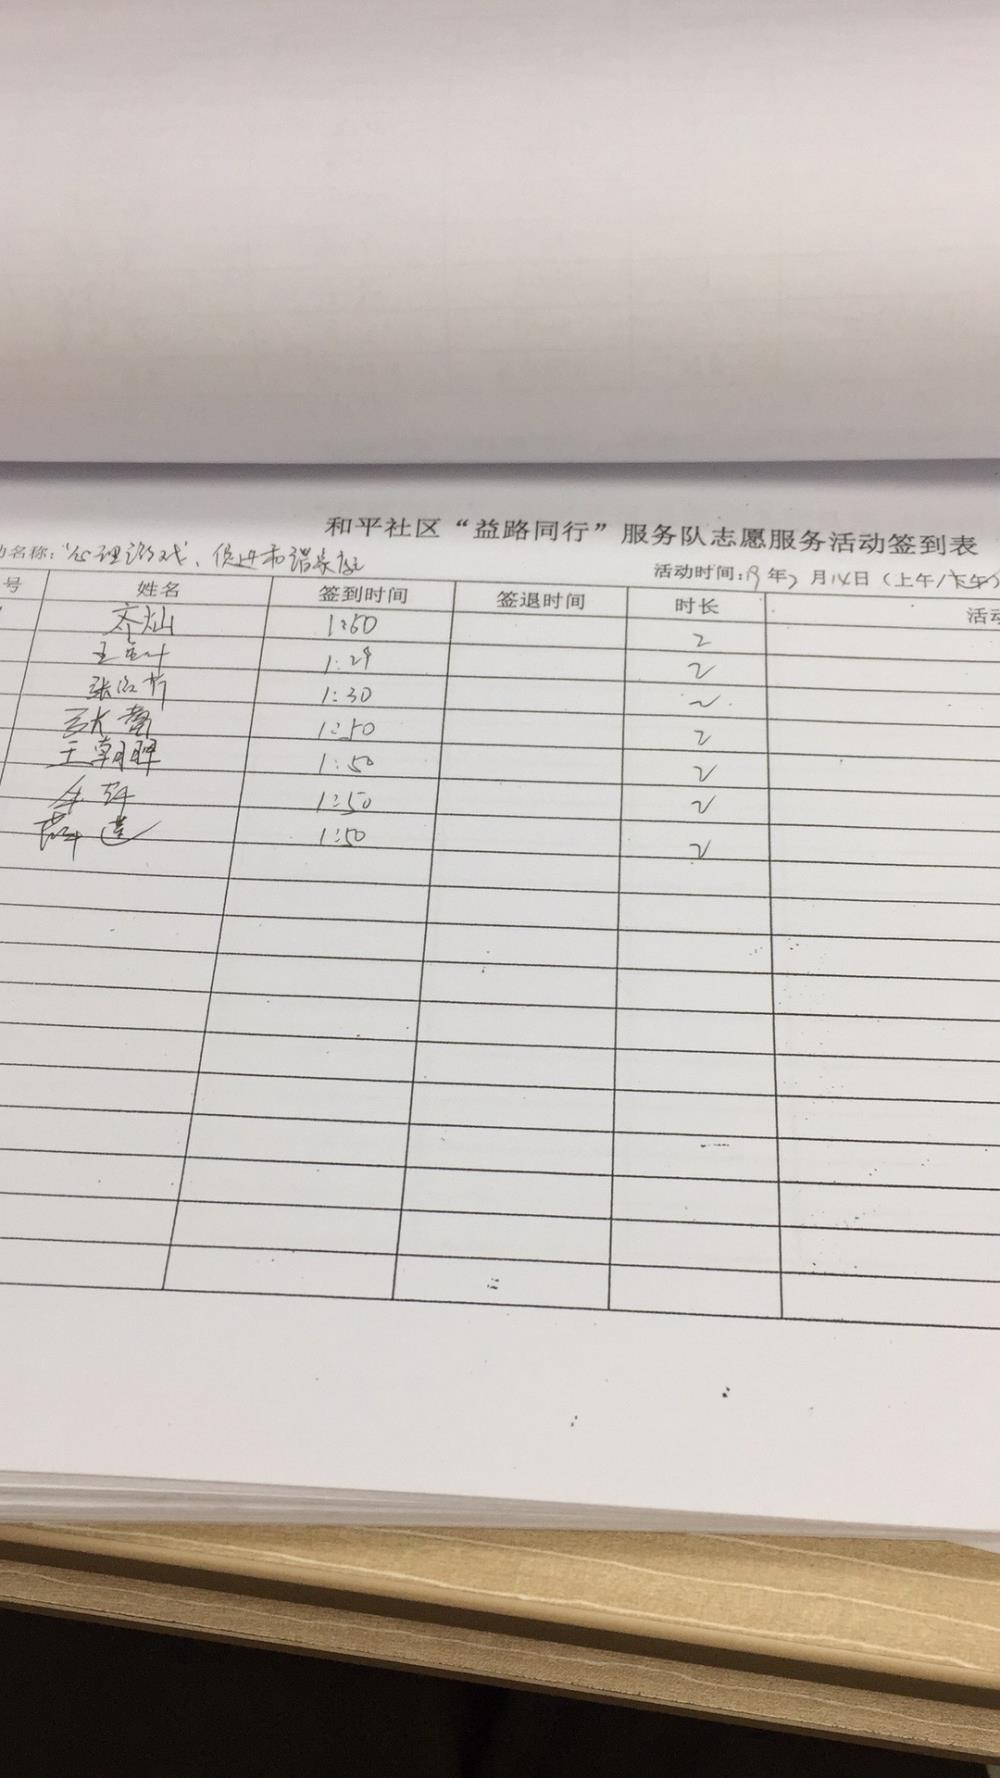 和平社区“益路同行”服务队志愿服务活动签到表
名称：“心理游戏，促进和谐家庭
活动时间：19年 月14日（上午/下午）
号 姓名 签到时间 签退时间 时长 活动
齐灿 1:50 2
王 1:29 2
张 1:30 2
张 1:50 2
王朝晖 1:50 2
1:50 2
薛莲 1:50 2